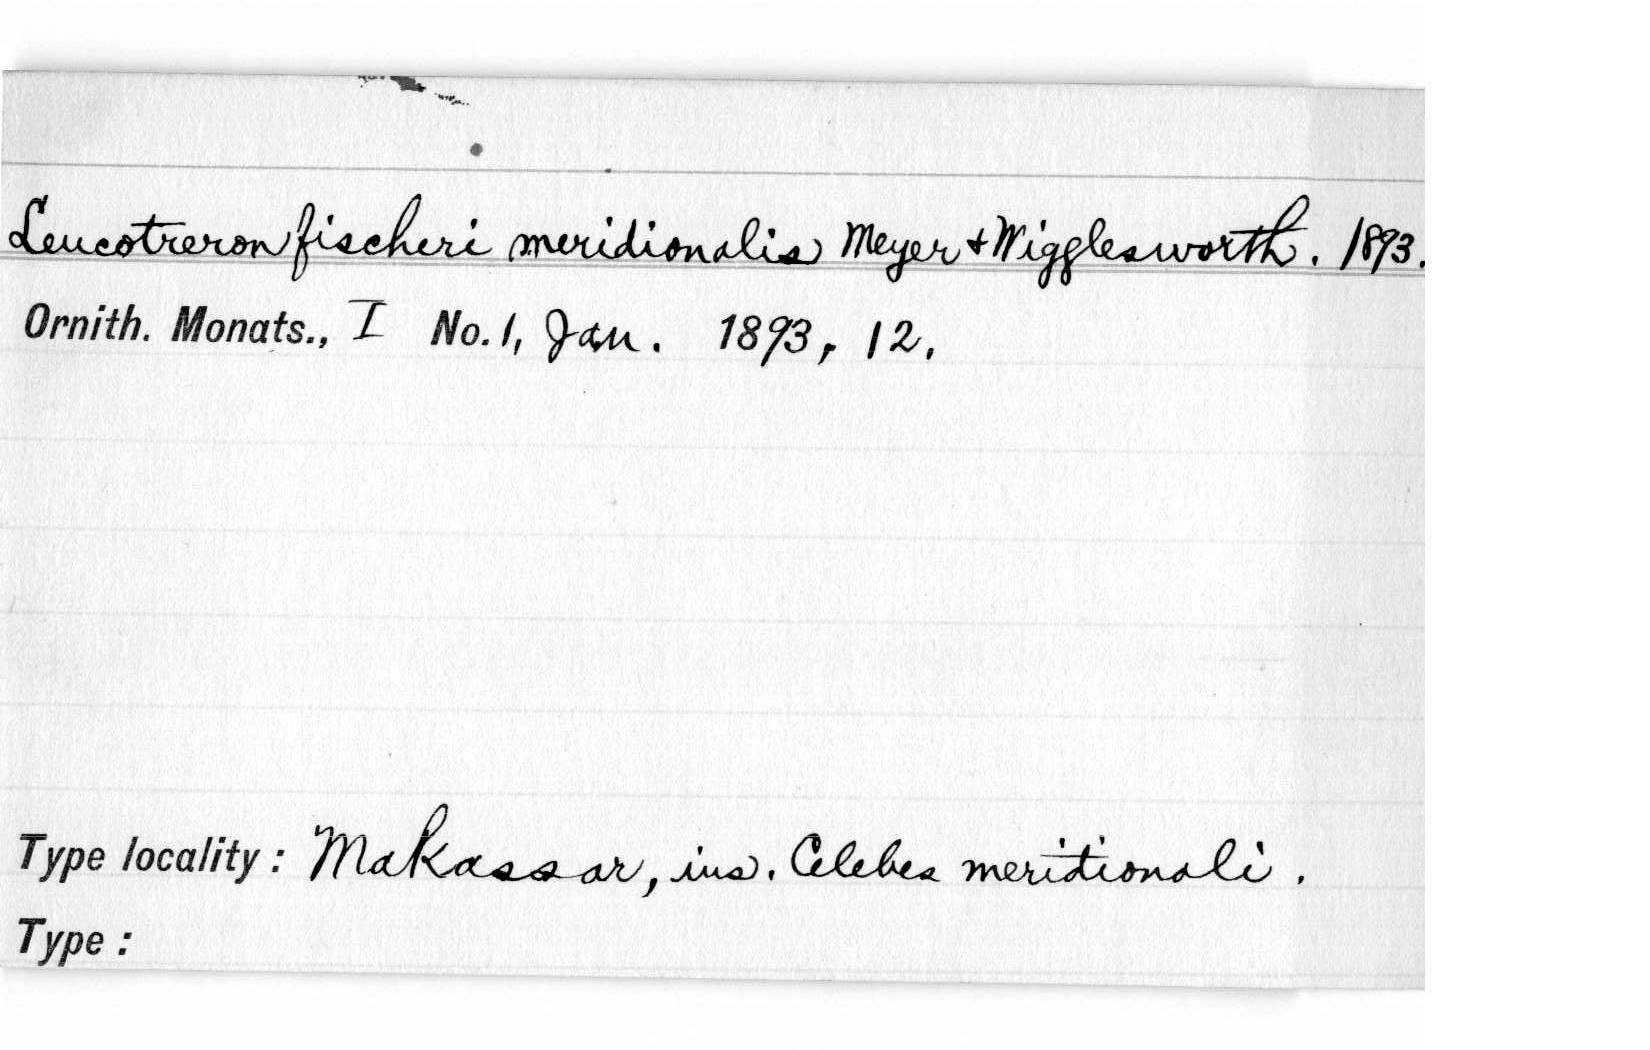 Leucotreron fischeri meridionalis Meyer + Wigglesworth. 1893.
Ornith. Monats., I No. 1, Jan. 1893, 12.
Type locality: Makassar, ins. Celebes meriditionali.
Type: